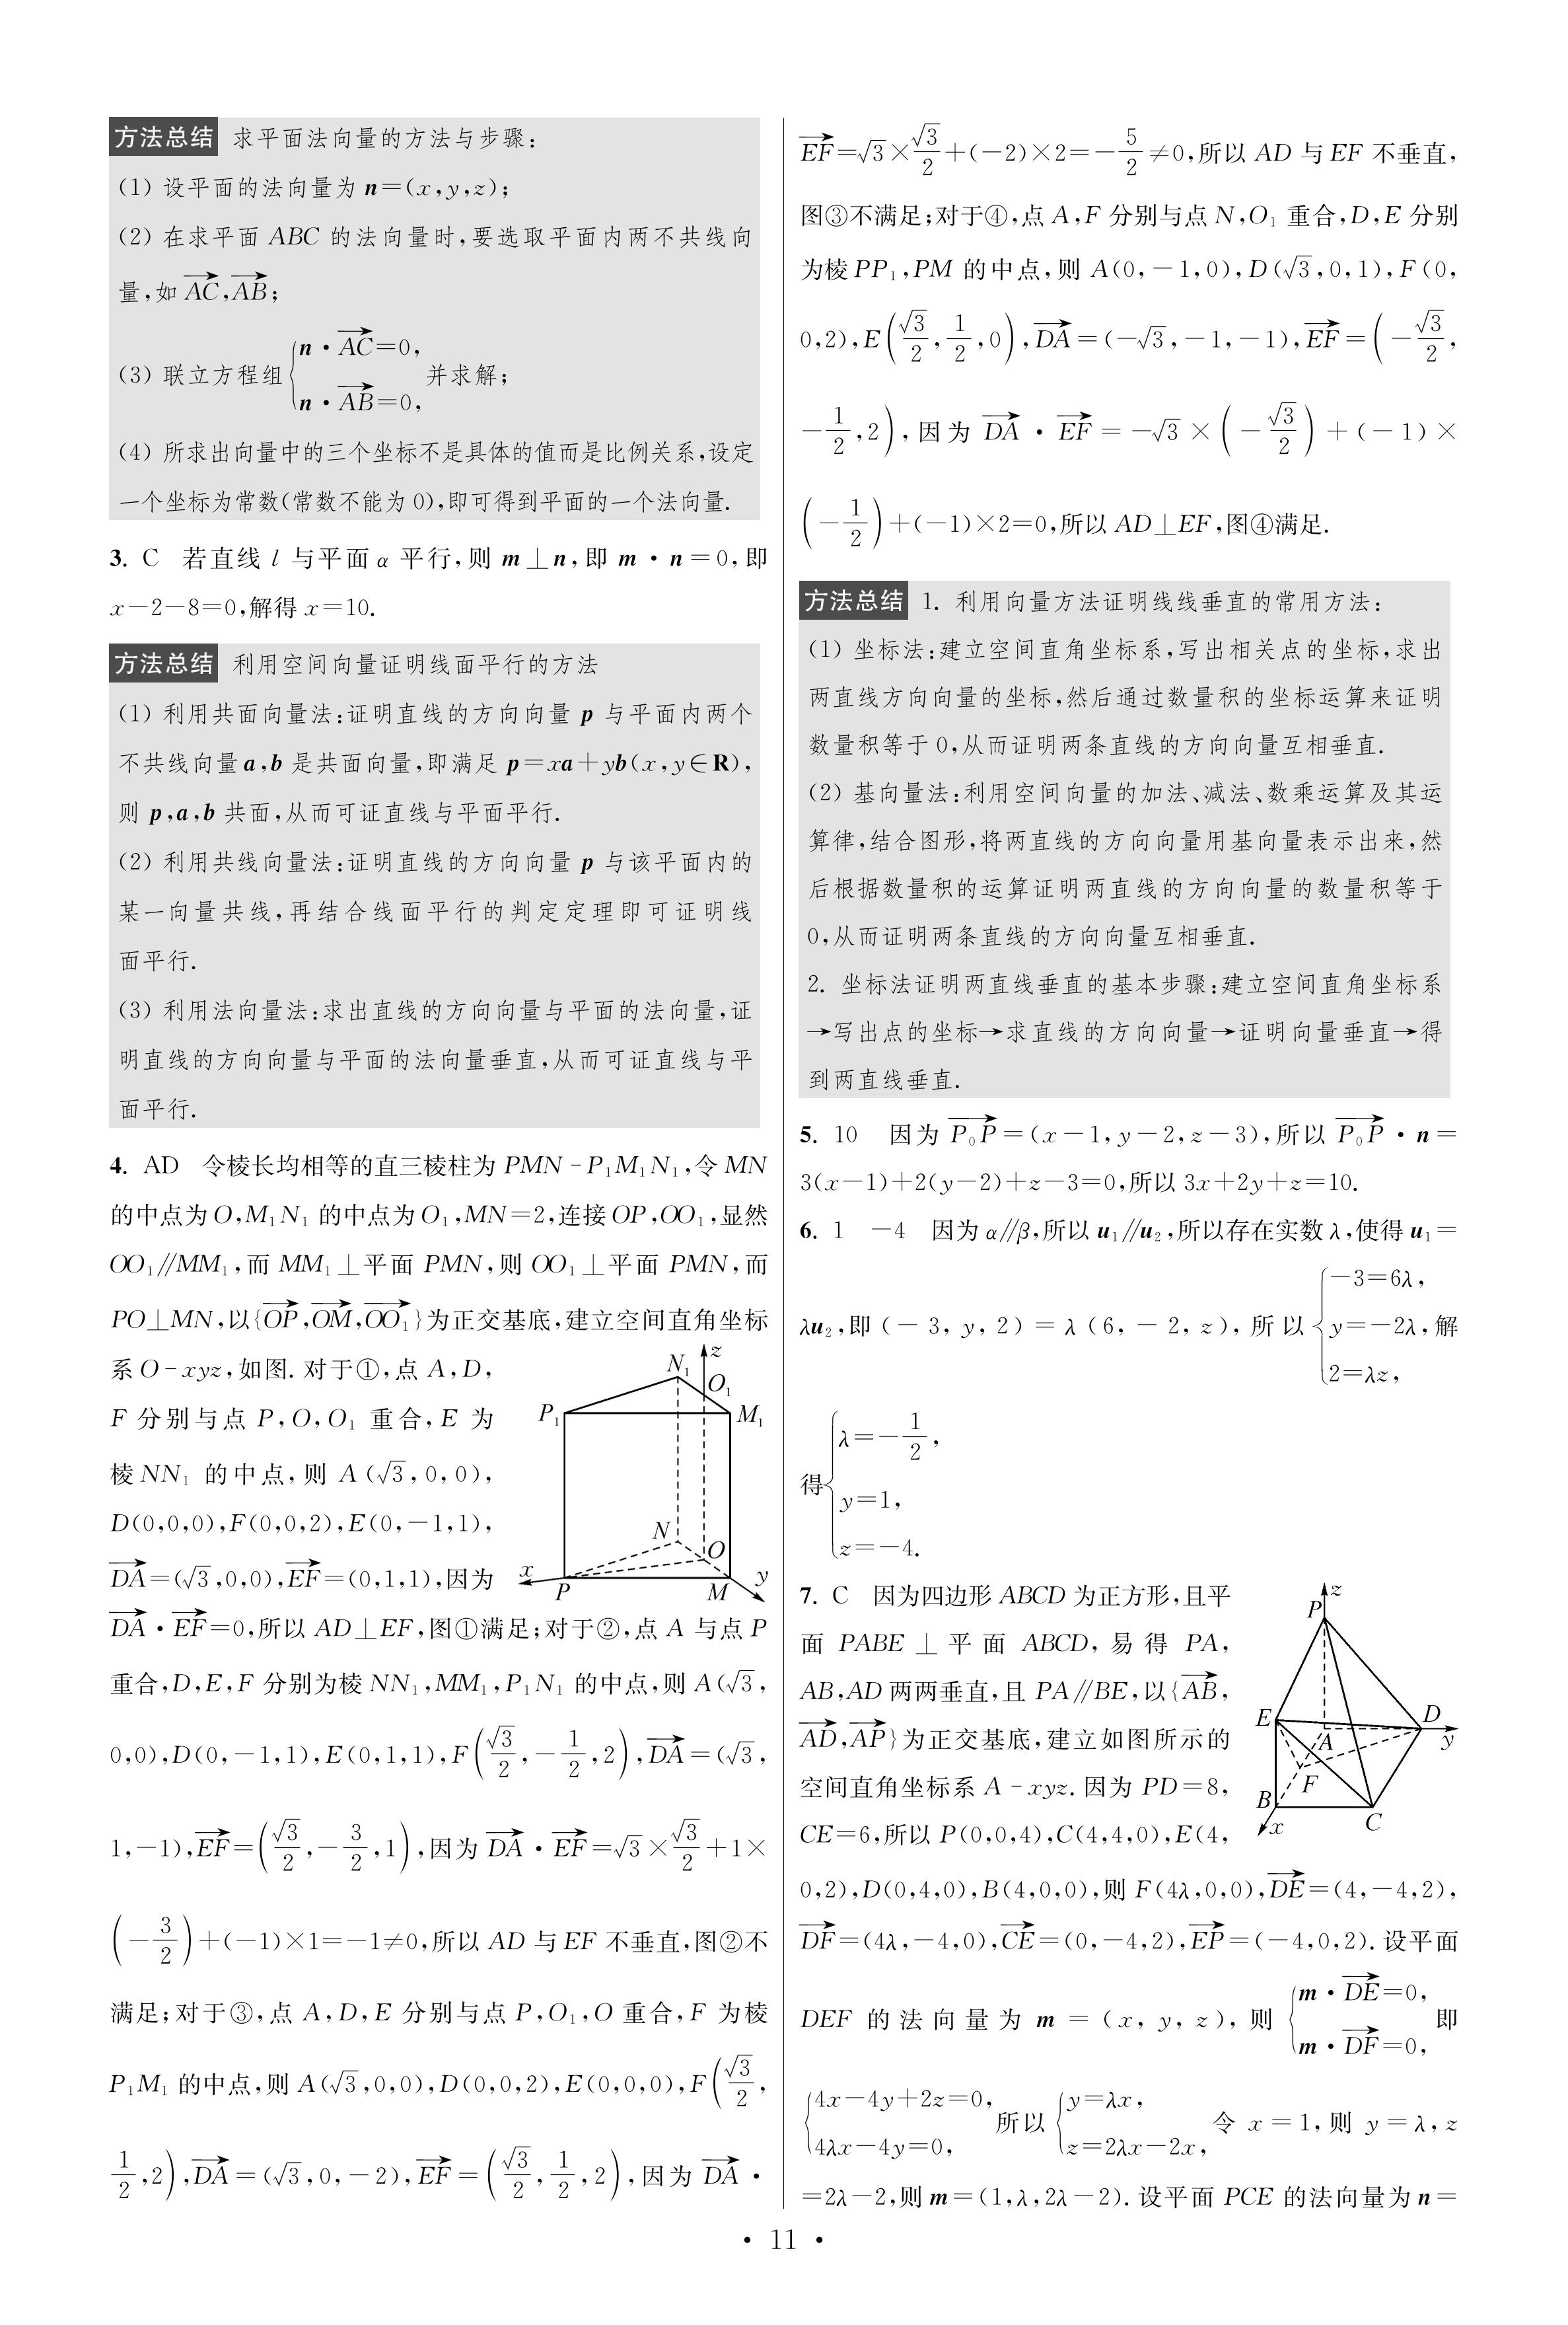 方法总结 求平面法向量的方法与步骤:
(1) 设平面的法向量为 n=(x,y,z);
(2) 在求平面 ABC 的法向量时,要选取平面内两不共线向
量,如 $\overrightarrow{AC}$,$\overrightarrow{AB}$;
(3) 联立方程组 $\begin{cases} n·\overrightarrow{AC}=0, \\ n·\overrightarrow{AB}=0, \end{cases}$ 并求解;
(4) 所求出向量中的三个坐标不是具体的值而是比例关系,设定
一个坐标为常数(常数不能为 0),即可得到平面的一个法向量.
3. C 若直线 l 与平面 α 平行,则 m⊥n,即 m·n=0,即
x-2-8=0,解得 x=10.
方法总结 利用空间向量证明线面平行的方法
(1) 利用共面向量法:证明直线的方向向量 p 与平面内两个
不共线向量 a,b 是共面向量,即满足 p=xa+yb(x,y∈R),
则 p,a,b 共面,从而可证直线与平面平行.
(2) 利用共线向量法:证明直线的方向向量 p 与该平面内的
某一向量共线,再结合线面平行的判定定理即可证明线
面平行.
(3) 利用法向量法:求出直线的方向向量与平面的法向量,证
明直线的方向向量与平面的法向量垂直,从而可证直线与平
面平行.
4. AD 令棱长均相等的直三棱柱为 PMN-P₁M₁N₁,令 MN
的中点为 O,M₁N₁ 的中点为 O₁,MN=2,连接 OP,OO₁,显然
OO₁∥MM₁,而 MM₁⊥平面 PMN,则 OO₁⊥平面 PMN,而
PO⊥MN,以{$\overrightarrow{OP}$,$\overrightarrow{OM}$,$\overrightarrow{OO_1}$}为正交基底,建立空间直角坐标
系 O-xyz,如图. 对于①,点 A,D,
F 分别与点 P,O,O₁ 重合,E 为
棱 NN₁ 的中点,则 A(√3,0,0),
D(0,0,0),F(0,0,2),E(0,-1,1),
$\overrightarrow{DA}$=(√3,0,0),$\overrightarrow{EF}$=(0,1,1),因为
z
N₁
O₁
P₁
M₁
N
O
x
P
M
y
$\overrightarrow{DA}$·$\overrightarrow{EF}$=0,所以 AD⊥EF,图①满足;对于②,点 A 与点 P
重合,D,E,F 分别为棱 NN₁,MM₁,P₁N₁ 的中点,则 A(√3,
0,0),D(0,-1,1),E(0,1,1),F($\frac{\sqrt{3}}{2}$,-$\frac{1}{2}$,2),$\overrightarrow{DA}$=(√3,
1,-1),$\overrightarrow{EF}$=($\frac{\sqrt{3}}{2}$,-$\frac{3}{2}$,1),因为 $\overrightarrow{DA}$·$\overrightarrow{EF}$=√3×$\frac{\sqrt{3}}{2}$+1×
(-$\frac{3}{2}$)+(-1)×1=-1≠0,所以 AD 与 EF 不垂直,图②不
满足;对于③,点 A,D,E 分别与点 P,O₁,O 重合,F 为棱
P₁M₁ 的中点,则 A(√3,0,0),D(0,0,2),E(0,0,0),F($\frac{\sqrt{3}}{2}$,
$\frac{1}{2}$,2),$\overrightarrow{DA}$=(√3,0,-2),$\overrightarrow{EF}$=($\frac{\sqrt{3}}{2}$,$\frac{1}{2}$,2),因为 $\overrightarrow{DA}$·
$\overrightarrow{EF}$=√3×$\frac{\sqrt{3}}{2}$+(-2)×2=-$\frac{5}{2}$≠0,所以 AD 与 EF 不垂直,
图③不满足;对于④,点 A,F 分别与点 N,O₁ 重合,D,E 分别
为棱 PP₁,PM 的中点,则 A(0,-1,0),D(√3,0,1),F(0,
0,2),E($\frac{\sqrt{3}}{2}$,$\frac{1}{2}$,0),$\overrightarrow{DA}$=(-√3,-1,-1),$\overrightarrow{EF}$=(-$\frac{\sqrt{3}}{2}$,
-$\frac{1}{2}$,2),因为 $\overrightarrow{DA}$·$\overrightarrow{EF}$=-√3×(-$\frac{\sqrt{3}}{2}$)+(-1)×
(-$\frac{1}{2}$)+(-1)×2=0,所以 AD⊥EF,图④满足.
方法总结 1. 利用向量方法证明线线垂直的常用方法:
(1) 坐标法:建立空间直角坐标系,写出相关点的坐标,求出
两直线方向向量的坐标,然后通过数量积的坐标运算来证明
数量积等于 0,从而证明两条直线的方向向量互相垂直.
(2) 基向量法:利用空间向量的加法、减法、数乘运算及其运
算律,结合图形,将两直线的方向向量用基向量表示出来,然
后根据数量积的运算证明两直线的方向向量的数量积等于
0,从而证明两条直线的方向向量互相垂直.
2. 坐标法证明两直线垂直的基本步骤:建立空间直角坐标系
→写出点的坐标→求直线的方向向量→证明向量垂直→得
到两直线垂直.
5. 10 因为 $\overrightarrow{P_0P}$=(x-1,y-2,z-3),所以 $\overrightarrow{P_0P}$·n=
3(x-1)+2(y-2)+z-3=0,所以 3x+2y+z=10.
6. 1 -4 因为 α∥β,所以 u₁∥u₂,所以存在实数 λ,使得 u₁=
λu₂,即(-3,y,2)=λ(6,-2,z),所以 $\begin{cases} -3=6λ, \\ y=-2λ, \\ 2=λz, \end{cases}$ 解
得 $\begin{cases} λ=-\frac{1}{2}, \\ y=1, \\ z=-4. \end{cases}$
7. C 因为四边形 ABCD 为正方形,且平
面 PABE⊥平面 ABCD,易得 PA,
AB,AD 两两垂直,且 PA∥BE,以{$\overrightarrow{AB}$,
$\overrightarrow{AD}$,$\overrightarrow{AP}$}为正交基底,建立如图所示的
空间直角坐标系 A-xyz. 因为 PD=8,
CE=6,所以 P(0,0,4),C(4,4,0),E(4,
z
P
E
D
A
y
F
B
x
C
0,2),D(0,4,0),B(4,0,0),则 F(4λ,0,0),$\overrightarrow{DE}$=(4,-4,2),
$\overrightarrow{DF}$=(4λ,-4,0),$\overrightarrow{CE}$=(0,-4,2),$\overrightarrow{EP}$=(-4,0,2). 设平面
DEF 的法向量为 m=(x,y,z),则 $\begin{cases} m·\overrightarrow{DE}=0, \\ m·\overrightarrow{DF}=0, \end{cases}$ 即
$\begin{cases} 4x-4y+2z=0, \\ 4λx-4y=0, \end{cases}$ 所以 $\begin{cases} y=λx, \\ z=2λx-2x, \end{cases}$ 令 x=1,则 y=λ,z
=2λ-2,则 m=(1,λ,2λ-2). 设平面 PCE 的法向量为 n=
· 11 ·